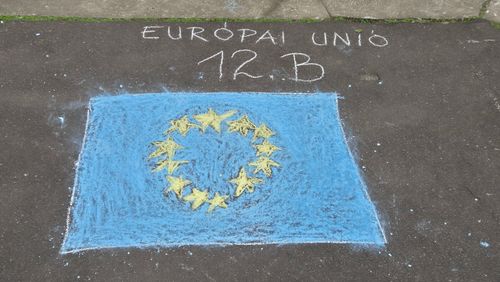 EURÓPAI UNIÓ
12.B